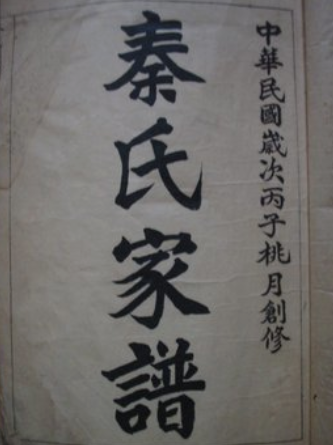 中華民國歲次丙子桃月創修
秦氏家譜